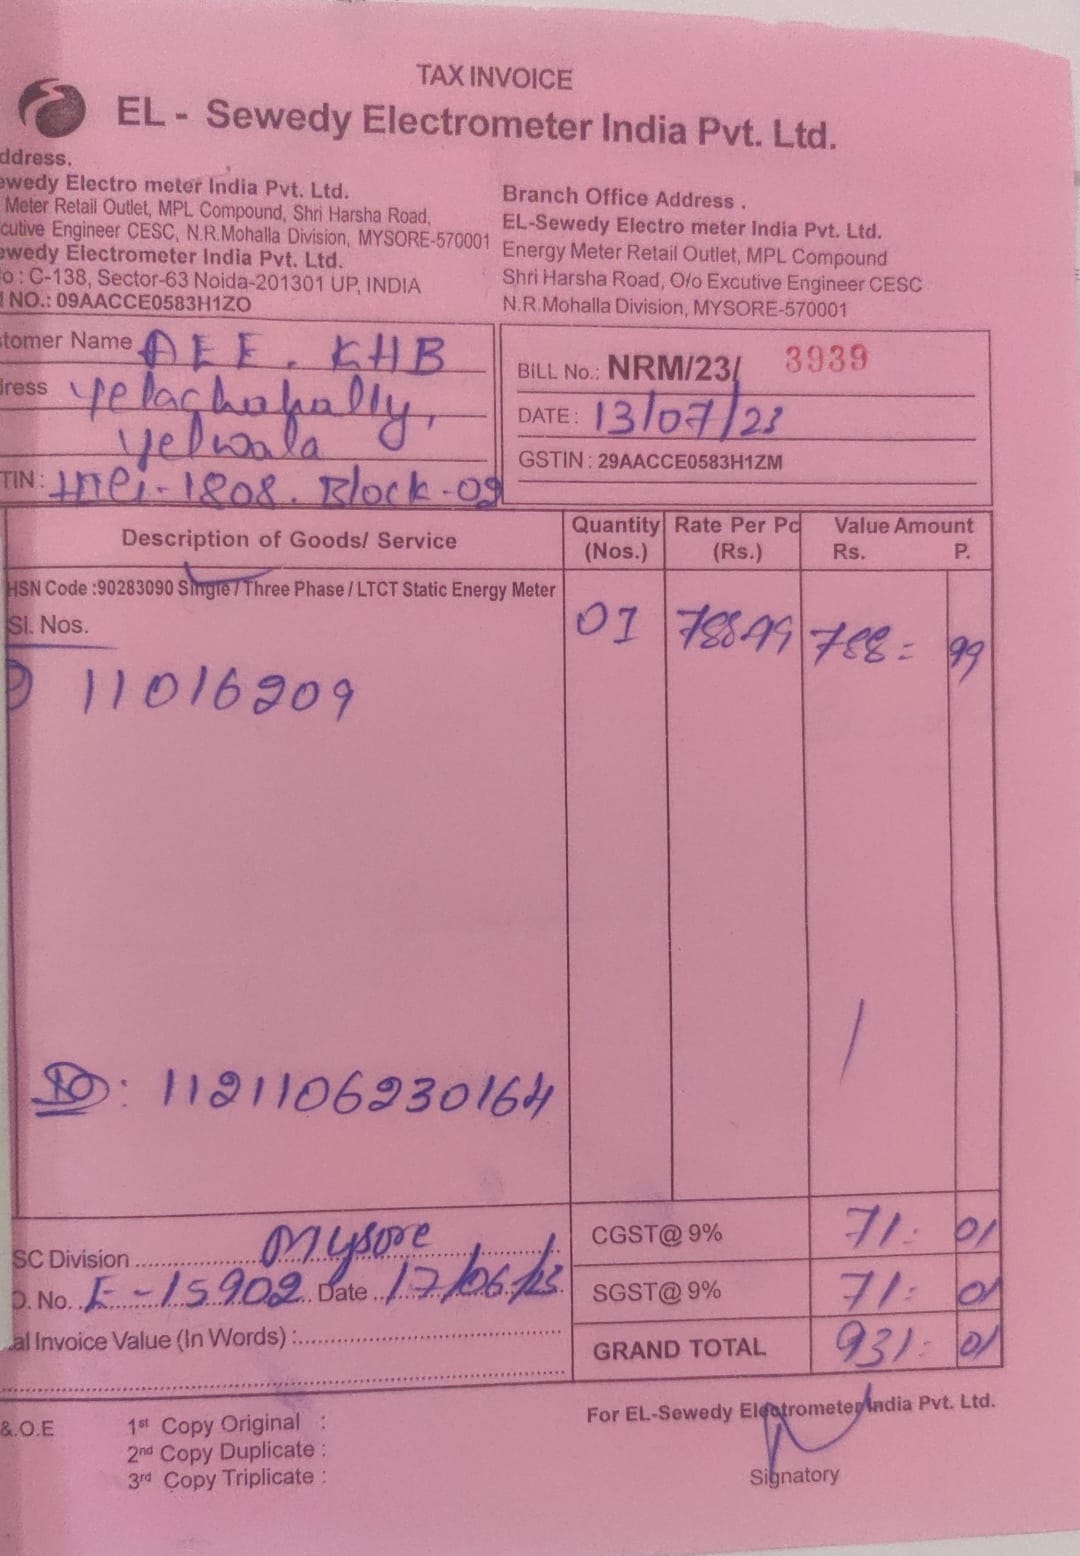 TAX INVOICE
EL - Sewedy Electrometer India Pvt. Ltd.
ddress.
ewedy Electro meter India Pvt. Ltd.
Meter Retail Outlet, MPL Compound, Shri Harsha Road,
cutive Engineer CESC, N.R.Mohalla Division, MYSORE-570001
ewedy Electrometer India Pvt. Ltd.
o : C-138, Sector-63 Noida-201301 UP, INDIA
NO.: 09AACCE0583H1ZO
Branch Office Address .
EL-Sewedy Electro meter India Pvt. Ltd.
Energy Meter Retail Outlet, MPL Compound
Shri Harsha Road, O/o Excutive Engineer CESC
N.R.Mohalla Division, MYSORE-570001
tomer Name AEE. KHB
ress Yelachahally,
Yelwala
TIN : 1808. Block-09
BILL No.: NRM/23/ 3939
DATE : 13/07/23
GSTIN : 29AACCE0583H1ZM
Description of Goods/ Service
Quantity (Nos.)
Rate Per Pc (Rs.)
Value Amount
Rs. P.
HSN Code :90283090 Single / Three Phase / LTCT Static Energy Meter
Sl. Nos.
01 788.99 788 = 99
11016209
ID : 1121106230164
SC Division Mysore
O. No. E-15902 Date 17/06/23
al Invoice Value (In Words) :
CGST@ 9% 71: 01
SGST@ 9% 71: 01
GRAND TOTAL 931: 01
&.O.E
1st Copy Original :
2nd Copy Duplicate :
3rd Copy Triplicate :
For EL-Sewedy Electrometer India Pvt. Ltd.
Signatory